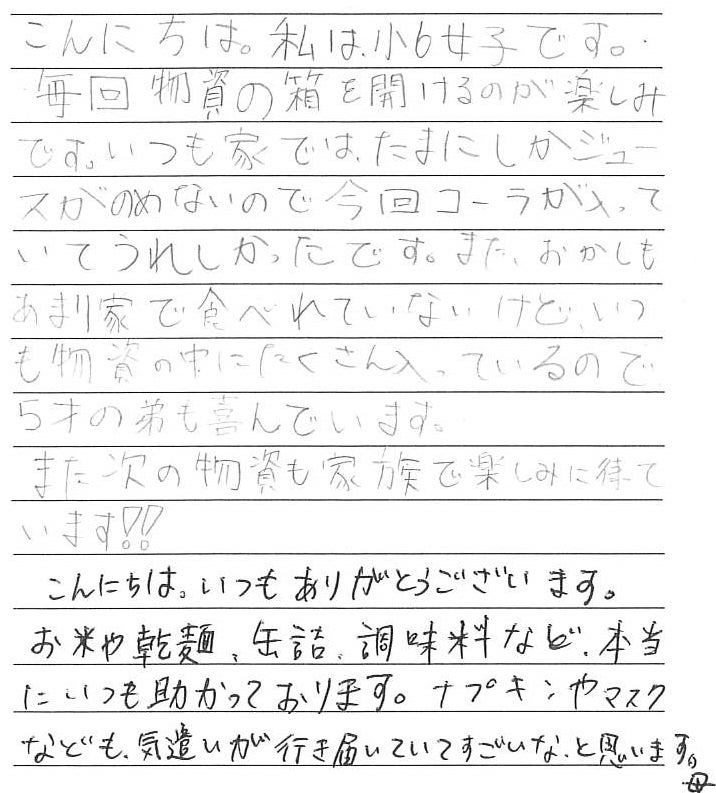 こんにちは。私は小6女子です。
毎回物資の箱を開けるのが楽しみ
です。いつも家では、たまにしかジュー
スがのめないので今回コーラが入って
いてうれしかったです。また、おかしも
あまり家で食べれていないけど、いつ
も物資の中にたくさん入っているので
5才の弟も喜んでいます。
また次の物資も家族で楽しみに待て
います!!
こんにちは。いつもありがとうございます。
お米や乾麺、缶詰、調味料など、本当
にいつも助かっております。ナプキンやマスク
なども、気遣いが行き届いていてすごいな、と思います。
母